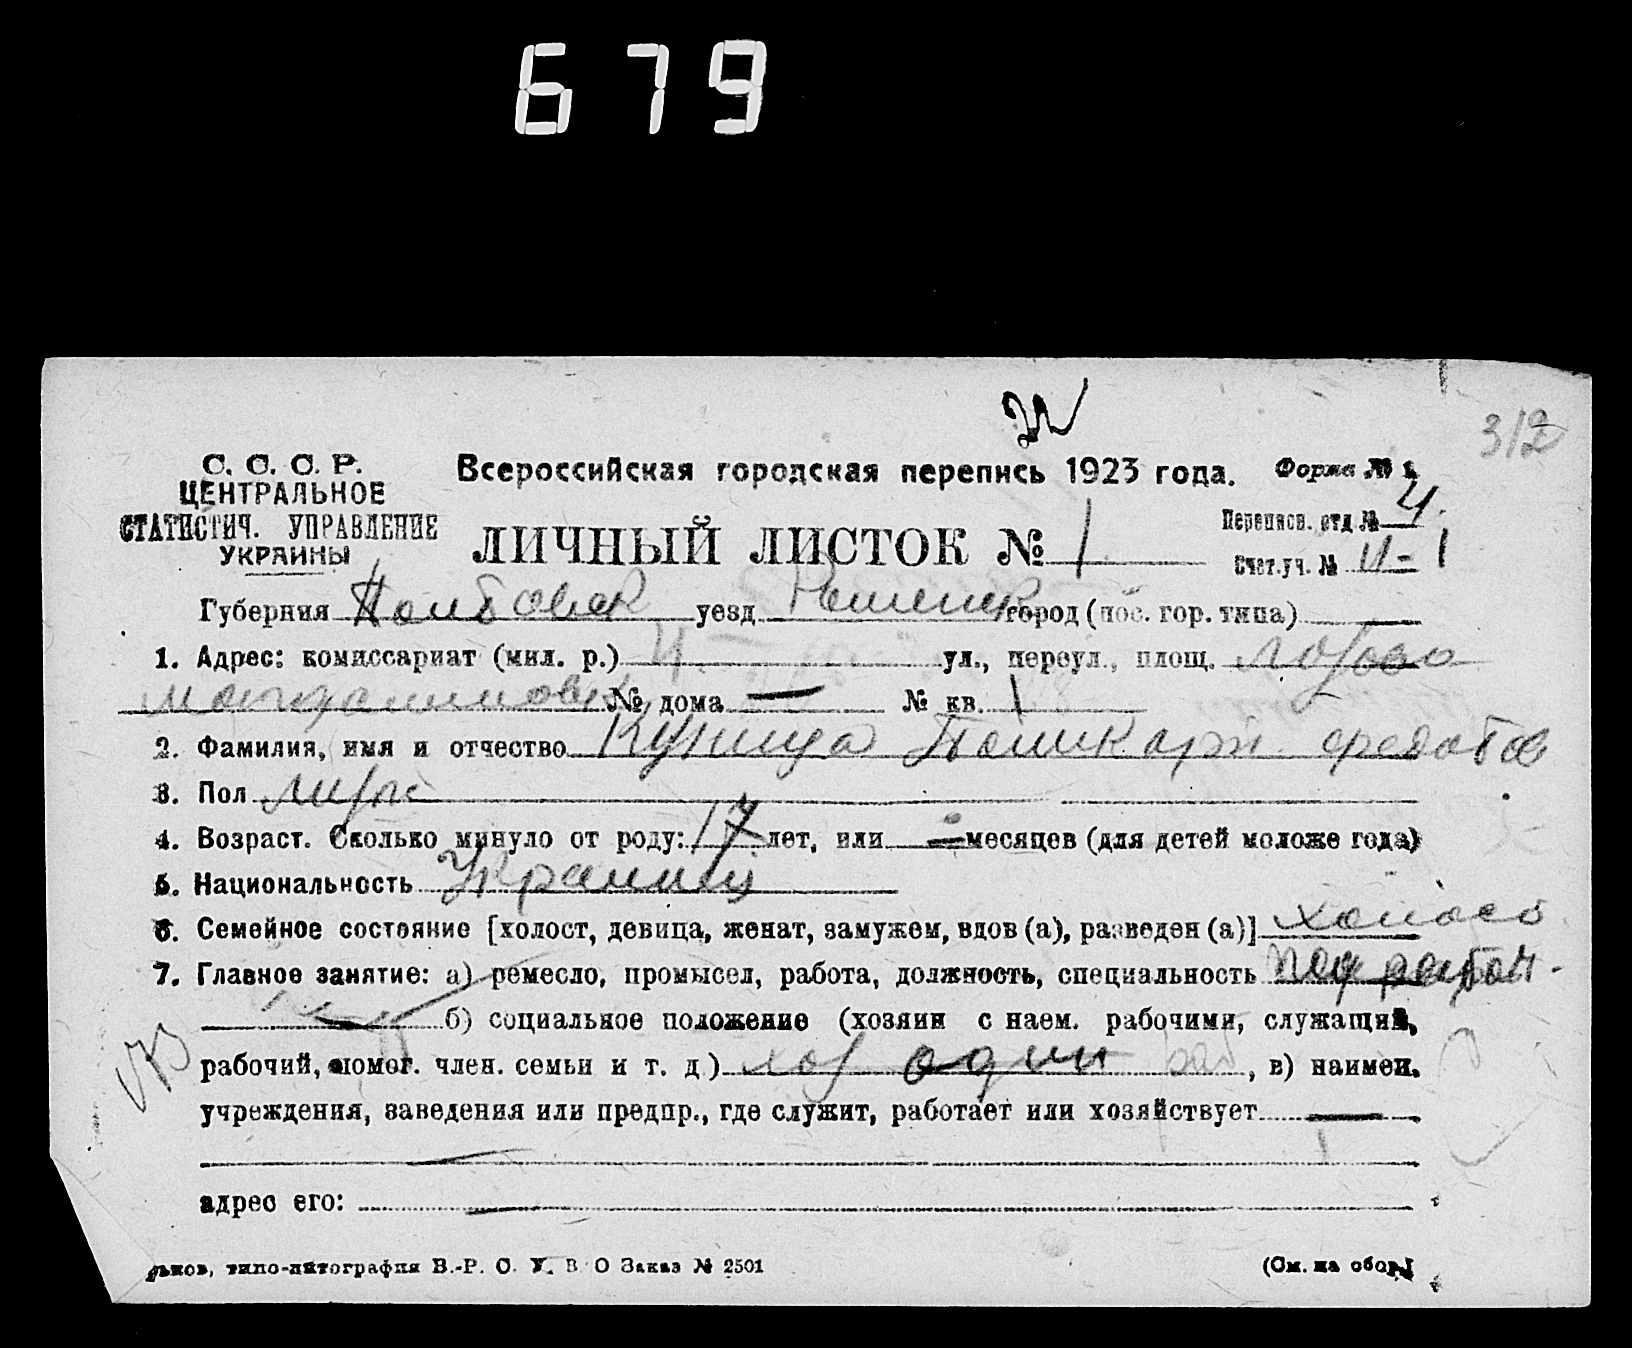 679
312
С. С. С. Р.
ЦЕНТРАЛЬНОЕ
СТАТИСТИЧ. УПРАВЛЕНИЕ
УКРАИНЫ
Всероссийская городская перепись 1923 года.
Форма № 1
ЛИЧНЫЙ ЛИСТОК № 1
Переписн. отд № 4.
Счет.уч. № 11-1
Губерния уезд город (пос. гор. типа)
1. Адрес: комиссариат (мил. р.) ул., переул., площ.
№ дома — № кв. 1
2. Фамилия, имя и отчество Куница
3. Пол муж
4. Возраст. Сколько минуло от роду: 17 лет, или — месяцев (для детей моложе года)
5. Национальность Украинец
6. Семейное состояние [холост, девица, женат, замужем, вдов (а), разведен (а)] холост
7. Главное занятие: а) ремесло, промысел, работа, должность, специальность
б) социальное положение (хозяин с наем. рабочими, служащий,
рабочий, помог. член. семьи и т. д) хоз один раб, в) наимен.
учреждения, заведения или предпр., где служит, работает или хозяйствует —
адрес его:
рьков, типо-литография В.-Р. С. У. В О Заказ № 2501
(См. на обор.)